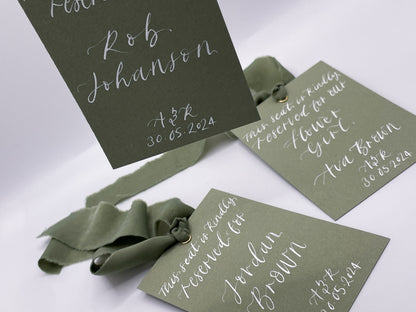 Reserved for
Rob
Johanson
A & R
30.05.2024
This seat is kindly
reserved for our
Flower
Girl.
Ava Brown
A & R
30.05.2024
This seat is kindly
reserved for
Jordan
Brown
A & R
30.05.2024